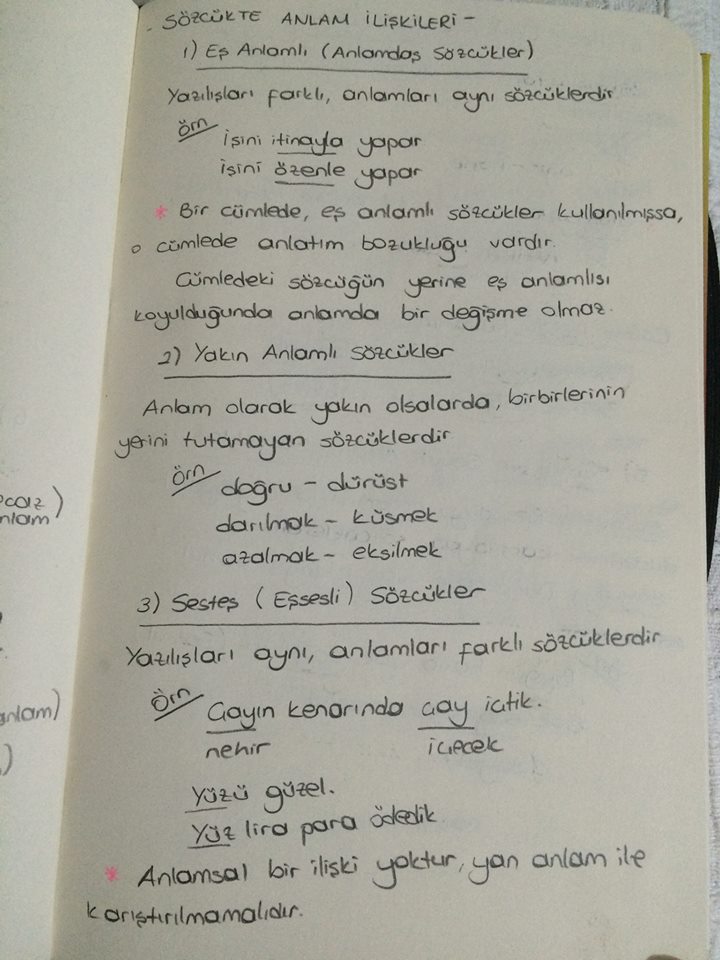 SÖZCÜKTE ANLAM İLİŞKİLERİ -
1) Eş Anlamlı (Anlamdaş Sözcükler)
Yazılışları farklı, anlamları aynı sözcüklerdir
Örn
İşini itinayla yapar
İşini özenle yapar
* Bir cümlede, eş anlamlı sözcükler kullanılmışsa,
o cümlede anlatım bozukluğu vardır.
Cümledeki sözcüğün yerine eş anlamlısı
koyulduğunda anlamda bir değişme olmaz.
2) Yakın Anlamlı Sözcükler
Anlam olarak yakın olsalarda, birbirlerinin
yerini tutamayan sözcüklerdir
Örn
doğru - dürüst
darılmak - küsmek
azalmak - eksilmek
3) Sesteş (Eşsesli) Sözcükler
Yazılışları aynı, anlamları farklı sözcüklerdir
Örn
Çayın kenarında çay içtik.
nehir içecek
Yüzü güzel.
Yüz lira para ödedik
* Anlamsal bir ilişki yoktur, yan anlam ile
karıştırılmamalıdır.
anlam)